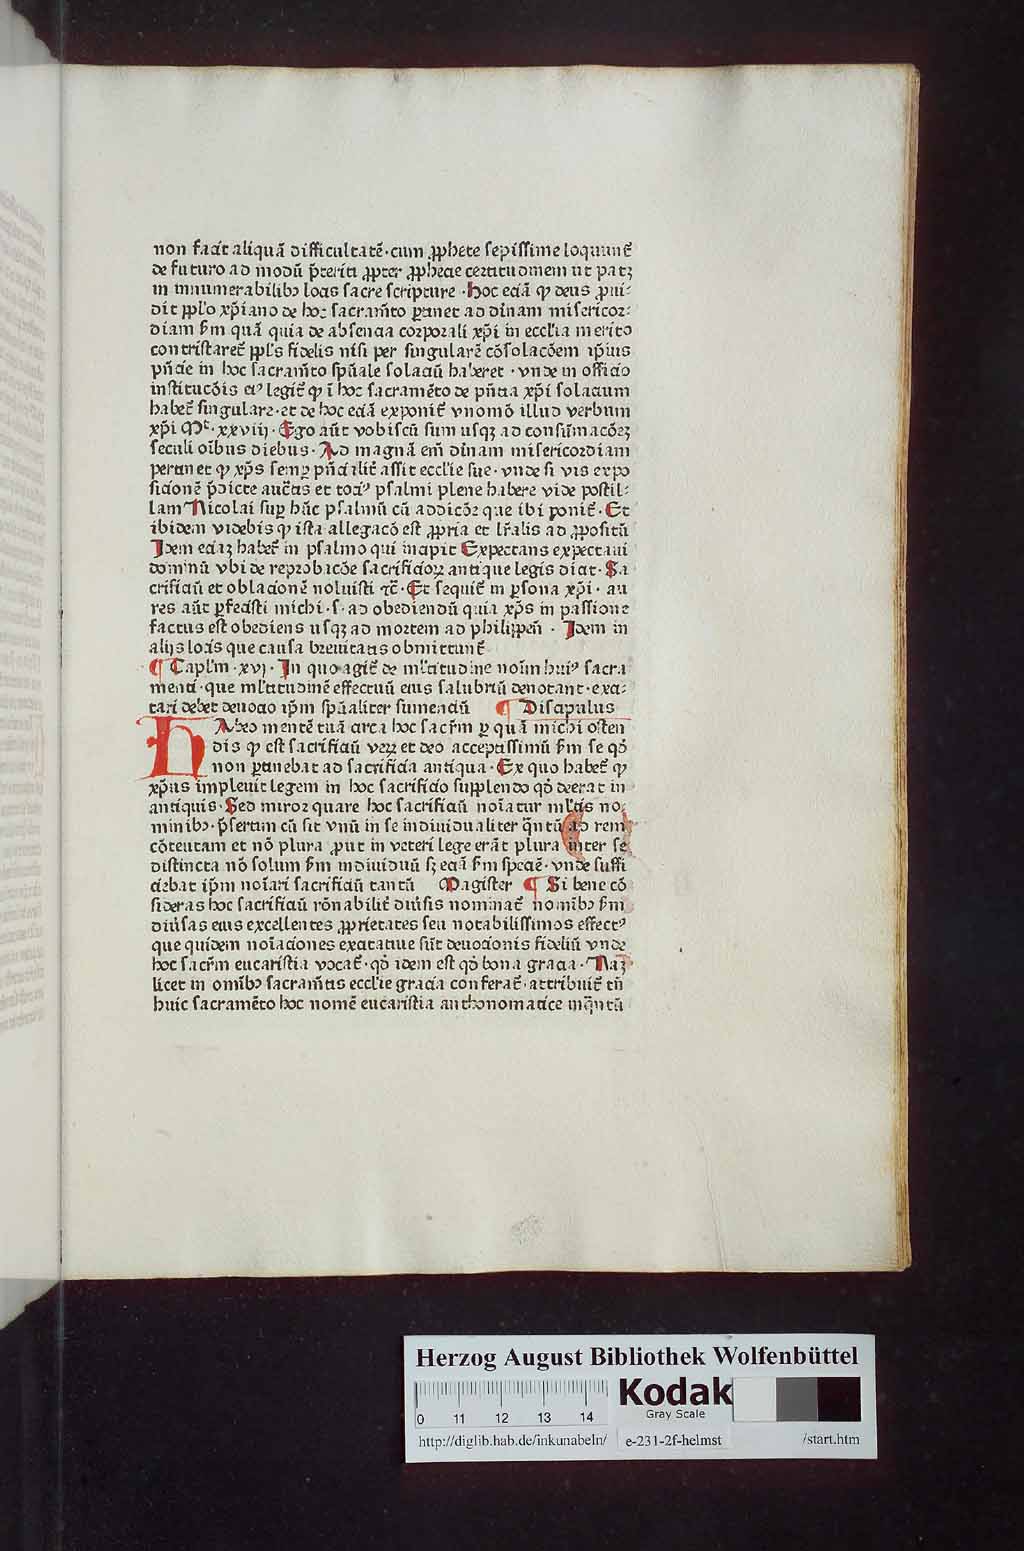 non facit aliquã difficultatẽ · cum ꝓphete sepissime loquunt᷑
de futuro ad modũ p̃teriti ꝓpter ꝓphecie certitudinem ut patꝫ
in innumerabilibꝰ locis sacre scripture · Hoc eciã ꝙ deus ꝓui-
dit ppl'o xp̃iano de hoc sacram̃to ꝑtinet ad diuinam misericor-
diam s̃m quã quia de absencia corporali xp̃i in eccl'ia merito
contristaret᷑ ppl's fidelis nisi per singularẽ cõsolacõem ip̃ius
pñcie in hoc sacram̃to sp̃uale solaciũ haberet · vnde in officio
institucõis eiꝰ legit᷑ ꝙ ĩ hoc sacramẽto de pñtia xp̃i solacium
habet᷑ singulare · et de hoc eciã exponit᷑ vnomõ illud verbum
xp̃i Mt̃ · xxviij · Ego aũt vobiscũ sum usqꝫ ad consũmacõeꝫ
seculi oĩbus diebus · Ad magnã em̃ diuinam misericordiam
pertinet ꝙ xp̃s semꝑ pñcialit᷑ assit eccl'ie sue · vnde si vis expo
sicionẽ p̃dicte auctis et tociꝰ psalmi plene habere vide postil-
lam Nicolai suꝑ hũc psalmũ cũ addicõe que ibi ponit᷑ · Et
ibidem videbis ꝙ ista allegacõ est ꝓpria et lr̃alis ad ꝓpositũ
Idem eciaꝫ habet᷑ in psalmo qui incipit Expectans expectaui
dominũ vbi de reprobacõe sacrificioꝝ antique legis dicit · Sa
crificiũ et oblacionẽ noluisti ⁊c̃ · Et sequit᷑ in ꝑsona xp̃i · au
res aũt ꝑfecisti michi · s · ad obediendũ quia xp̃s in passione
factus est obediens usqꝫ ad mortem ad philippeñ · Idem in
alijs locis que causa breuitatis obmittunt᷑
¶ Capl'm · xvj · In quo agit᷑ de ml'titudine noĩm huiꝰ sacra
menti · que ml'titudinẽ effectuũ eius salubriũ denotant · exci-
tari debet deuocio ip̃m sp̃ualiter sumendũ ¶ Discipulus
HAbeo mentẽ tuã circa hoc sacr̃m ꝑ quã michi osten
dis ꝙ est sacrificiũ veꝝ et deo acceptissimũ s̃m se qđ
non ꝑtinebat ad sacrificia antiqua · Ex quo habet᷑ ꝙ
xp̃us impleuit legem in hoc sacrificio supplendo qđ deerat in
antiquis · Sed miror quare hoc sacrificiũ noĩatur ml'tis no
minibꝰ · p̃sertim cũ sit vnũ in se indiuidualiter q̃ntũ ad rem
cõtentam et nõ plura ꝓut in veteri lege erãt plura inter se
distincta nõ solum s̃m indiuiduũ sꝫ eciã s̃m speciẽ · vnde suffi
ciebat ip̃m noĩari sacrificiũ tantũ Magister ¶ Si bene cõ
sideras hoc sacrificiũ rõnabilit᷑ diũsis nominat᷑ nomibꝰ s̃m
diũsas eius excellentes ꝓprietates seu notabilissimos effectꝰ
que quidem noĩaciones excitatiue sũt deuocionis fideliũ vnde
hoc sacr̃m eucaristia vocat᷑ · qđ idem est qđ bona gracia · Naꝫ
licet in omĩbꝰ sacram̃tis eccl'ie gracia conferat᷑ · attribuit᷑ tñ
huic sacramẽto hoc nomẽ eucaristia anthonomatice inq̃ntũ
Herzog August Bibliothek Wolfenbüttel
Kodak
Gray Scale
0 11 12 13 14
http://diglib.hab.de/inkunabeln/ e-231-2f-helmst /start.htm